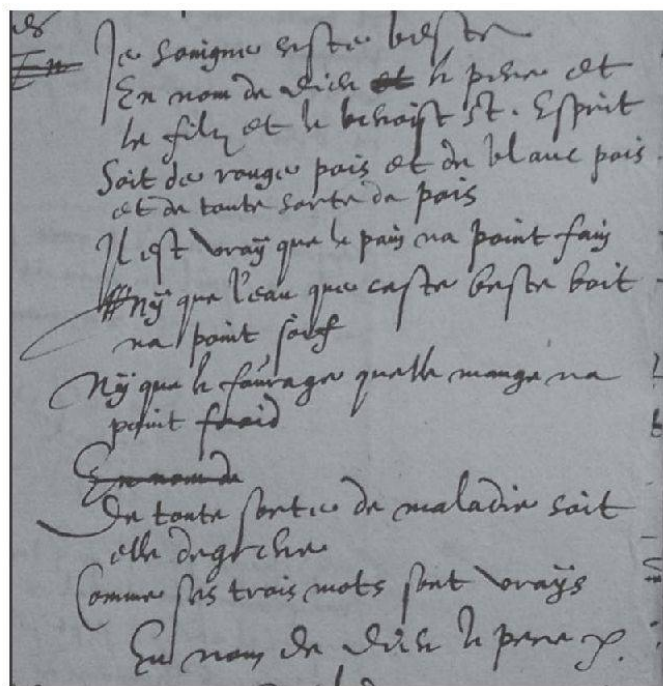 Je soigne ceste beste
En nom de Dieu et le pere et
le filz et le benoist St. Esprit
Soit de rouge pois et de blanc pois
et de toute sorte de pois
Il est vraÿ que le pain na point fain
nÿ que l'eau que ceste beste boit
na point soif
Nÿ que le fourage quelle mange na
point froid
En nom de
De toute sorte de maladie soit
elle
Comme ses trois mots sont vraÿs
En nom de Dieu le pere